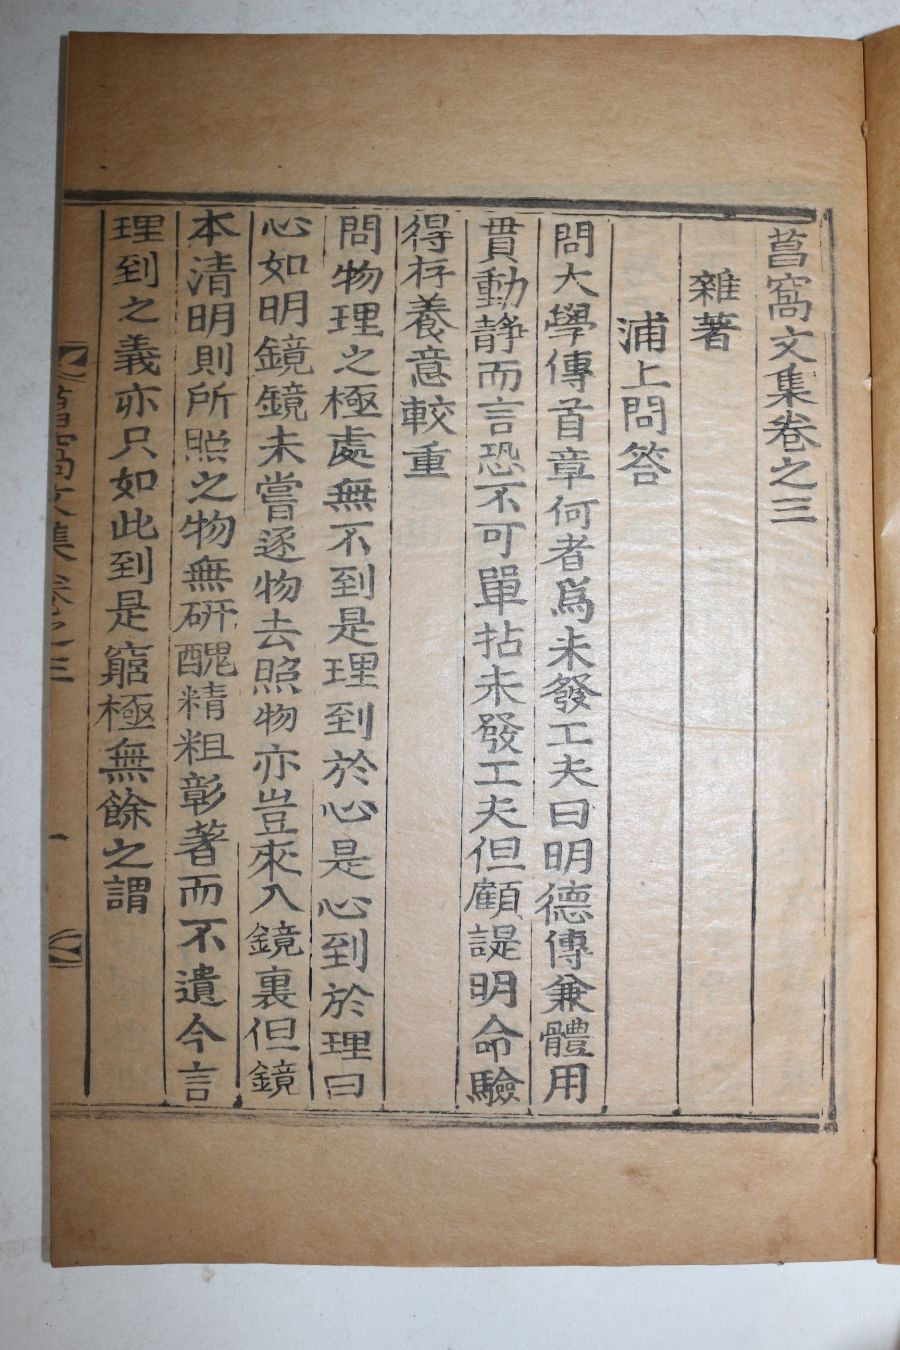 菖窩文集卷之三
雜著
浦上問答
問大學傳首章何者爲未發工夫曰明德傳兼體用
貫動静而言恐不可單拈未發工夫但顧諟明命驗
得存養意較重
問物理之極處無不到是理到於心是心到於理曰
心如明鏡鏡未嘗逐物去照物亦豈來入鏡裏但鏡
本清明則所照之物無硏醜精粗彰著而不遺今言
理到之義亦只如此到是窮極無餘之謂
菖窩文集卷之三 一